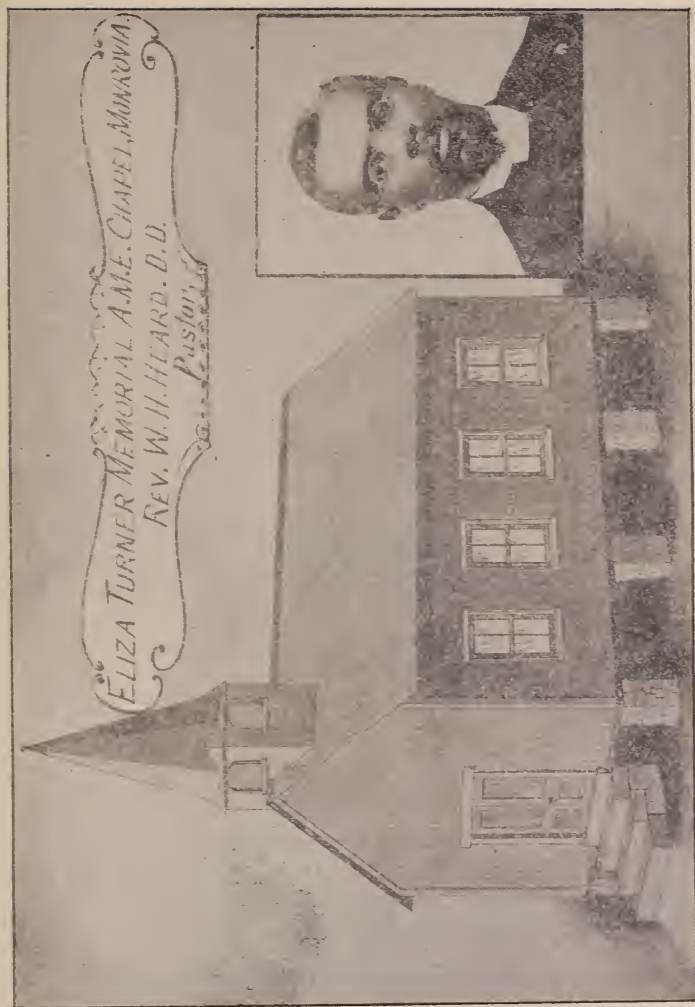 ELIZA TURNER MEMORIAL A.M.E. CHAPEL, MONROVIA.
REV. W. H. HEARD. D.D.
Pastor.